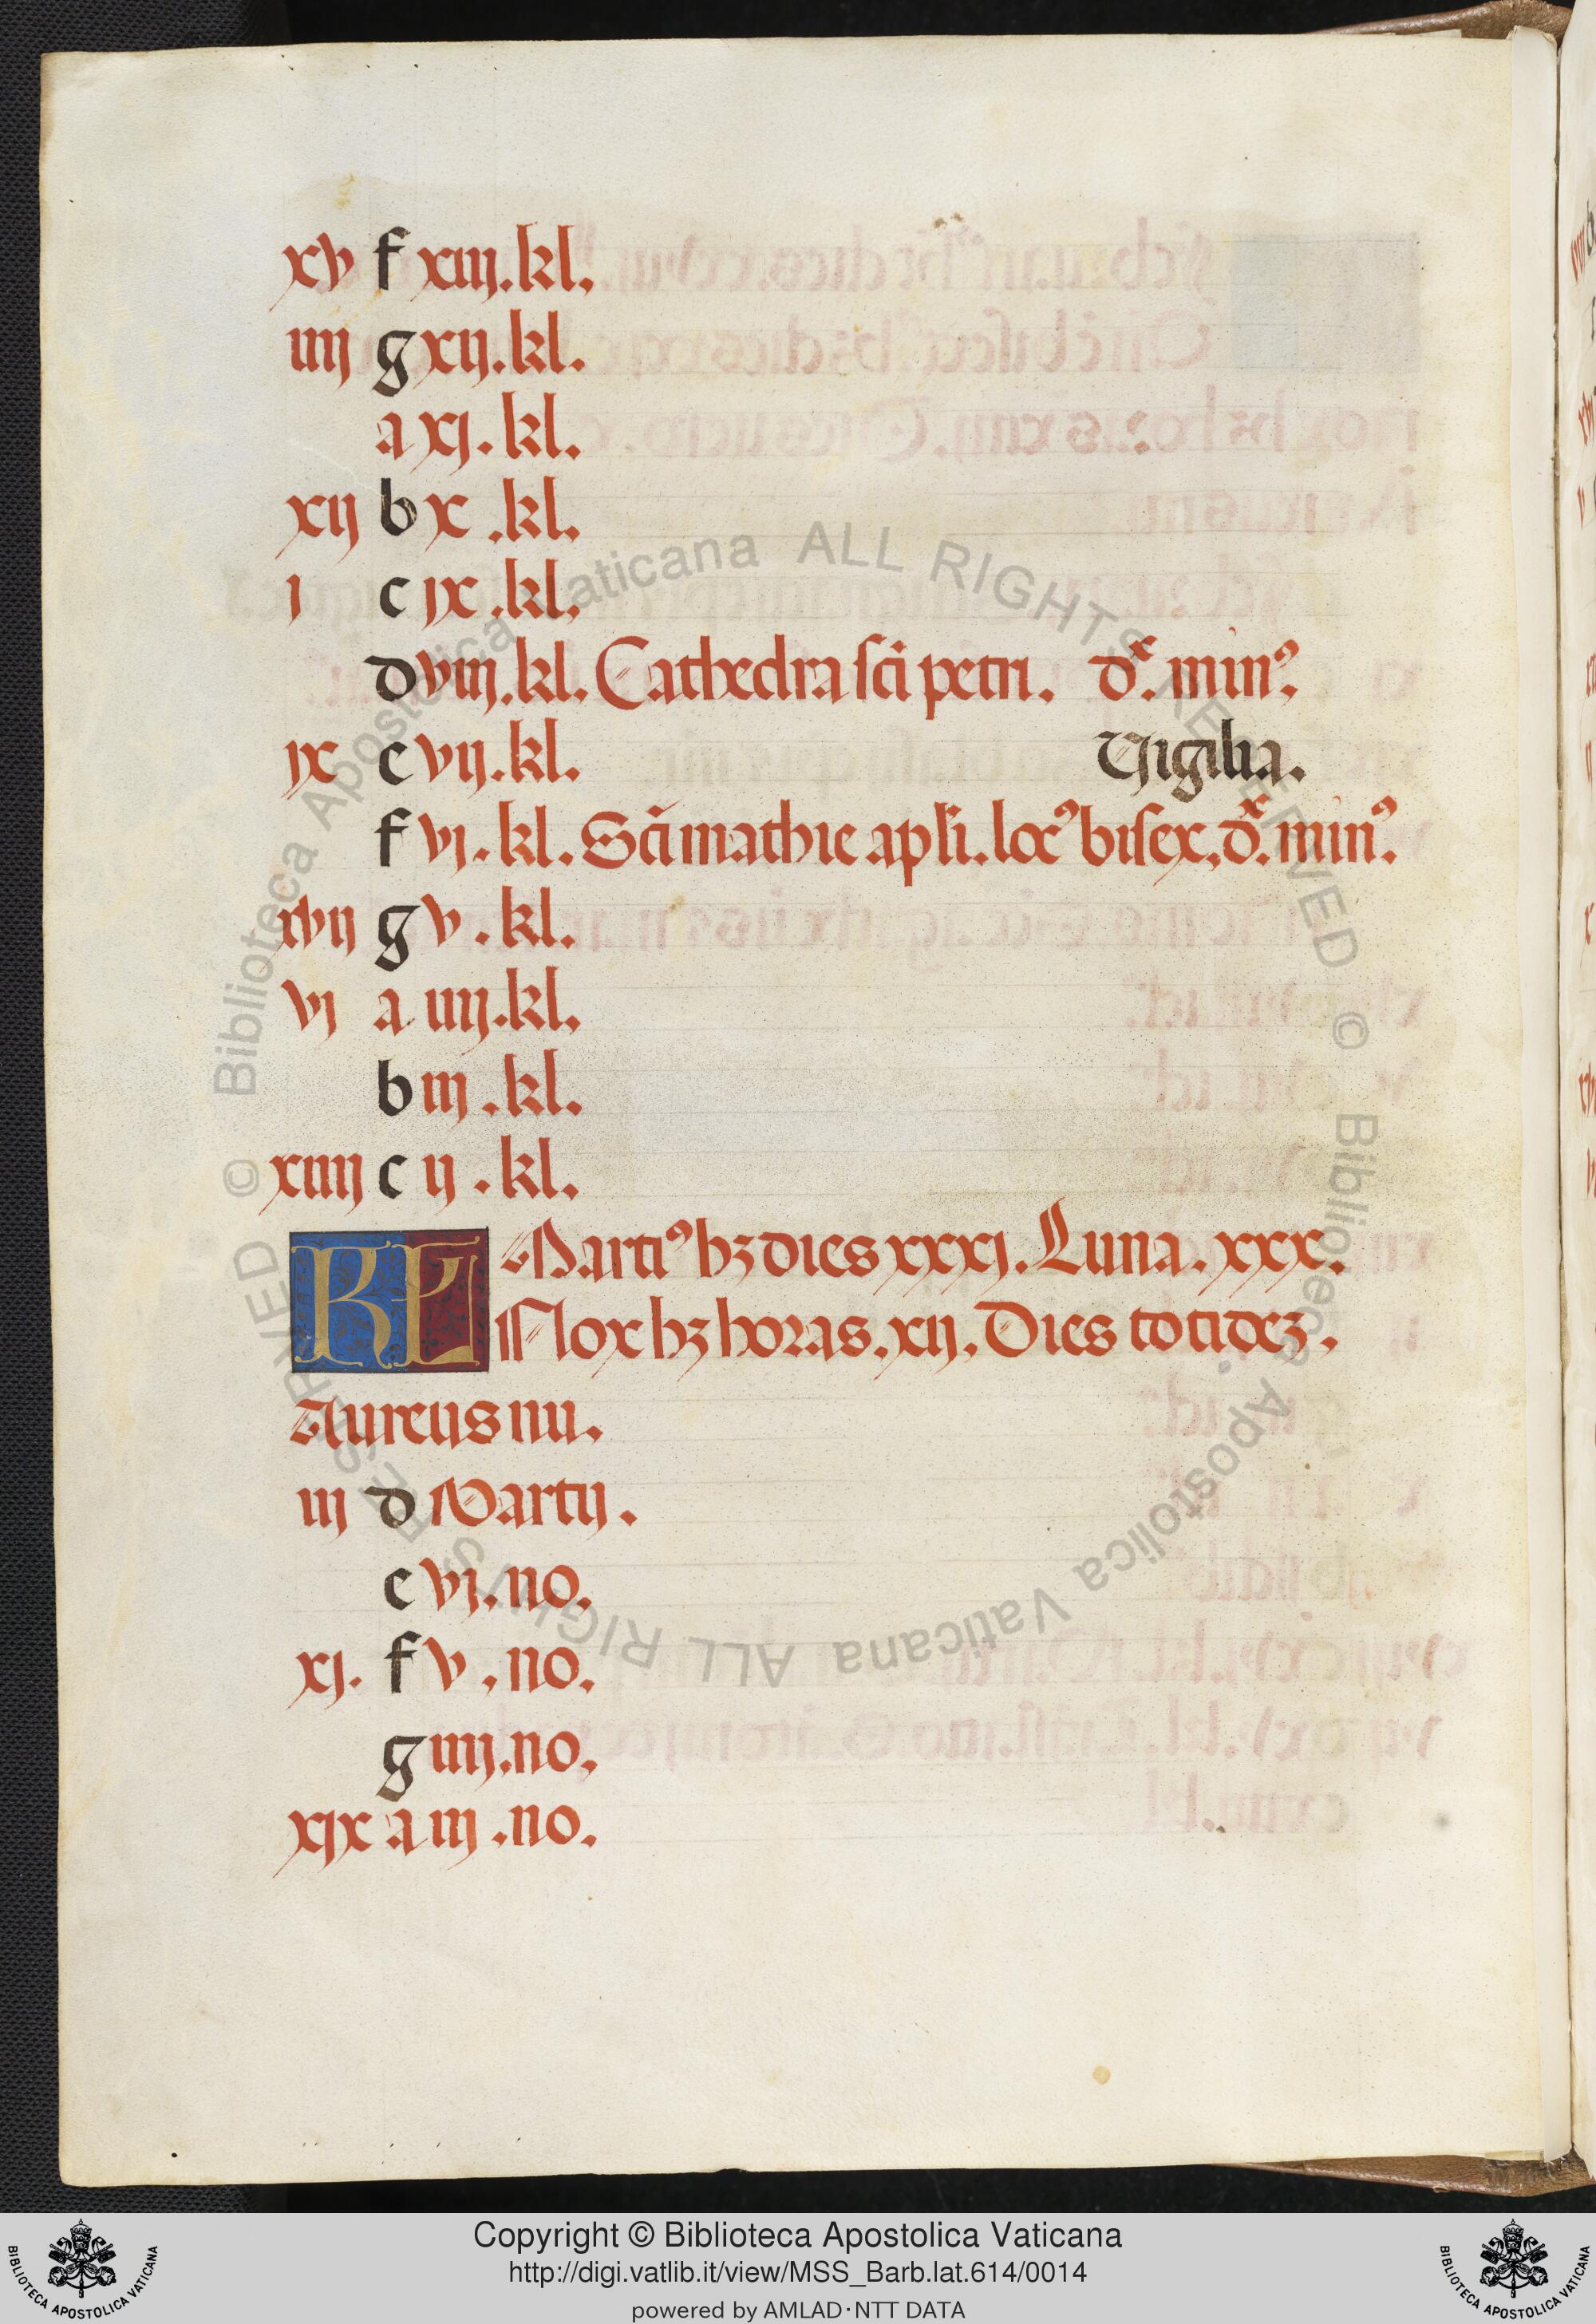 xv f xiij.kl.
iiij g xij.kl.
a xj.kl.
xij b x.kl.
i c ix.kl.
d viij.kl. Cathedra sci petri. dx. min9.
ix e vij.kl. Vigilia.
f vj.kl. Sci mathie apli. loc9 bisex. dx. min9.
xvij g v.kl.
vj a iiij.kl.
b iij.kl.
xiiij c ij.kl.
KL Marti9 hz dies xxxj. Luna. xxx.
Nox hz horas. xij. Dies totidez.
Aureus nu.
iij d Martij.
e vj.no.
xj. f v.no.
g iiij.no.
xix a iij.no.
© Biblioteca Apostolica Vaticana ALL RIGHTS RESERVED © Biblioteca Apostolica Vaticana ALL RIGHTS RESERVED
Copyright © Biblioteca Apostolica Vaticana
http://digi.vatlib.it/view/MSS_Barb.lat.614/0014
powered by AMLAD·NTT DATA
BIBLIOTECA APOSTOLICA VATICANA
BIBLIOTECA APOSTOLICA VATICANA